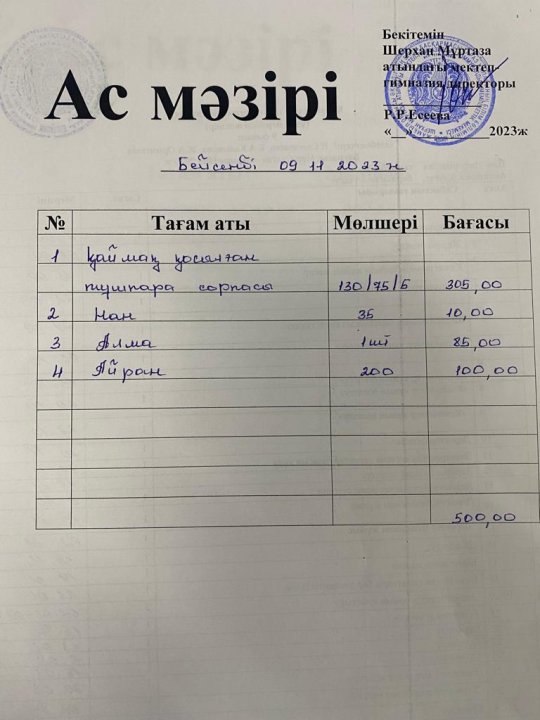 Бекітемін
Шерхан Мұртаза
атындағы мектеп-
гимназия директоры
Р.Р.Есеева
«__»__________2023ж
Ас мәзірі
Бейсенбі 09 11 2023 ж
№ Тағам аты Мөлшері Бағасы
1 Қаймақ қосылған
тұшпара сорпасы 130/75/5 305,00
2 Нан 35 10,00
3 Алма 1шт 85,00
4 Айран 200 100,00
500,00